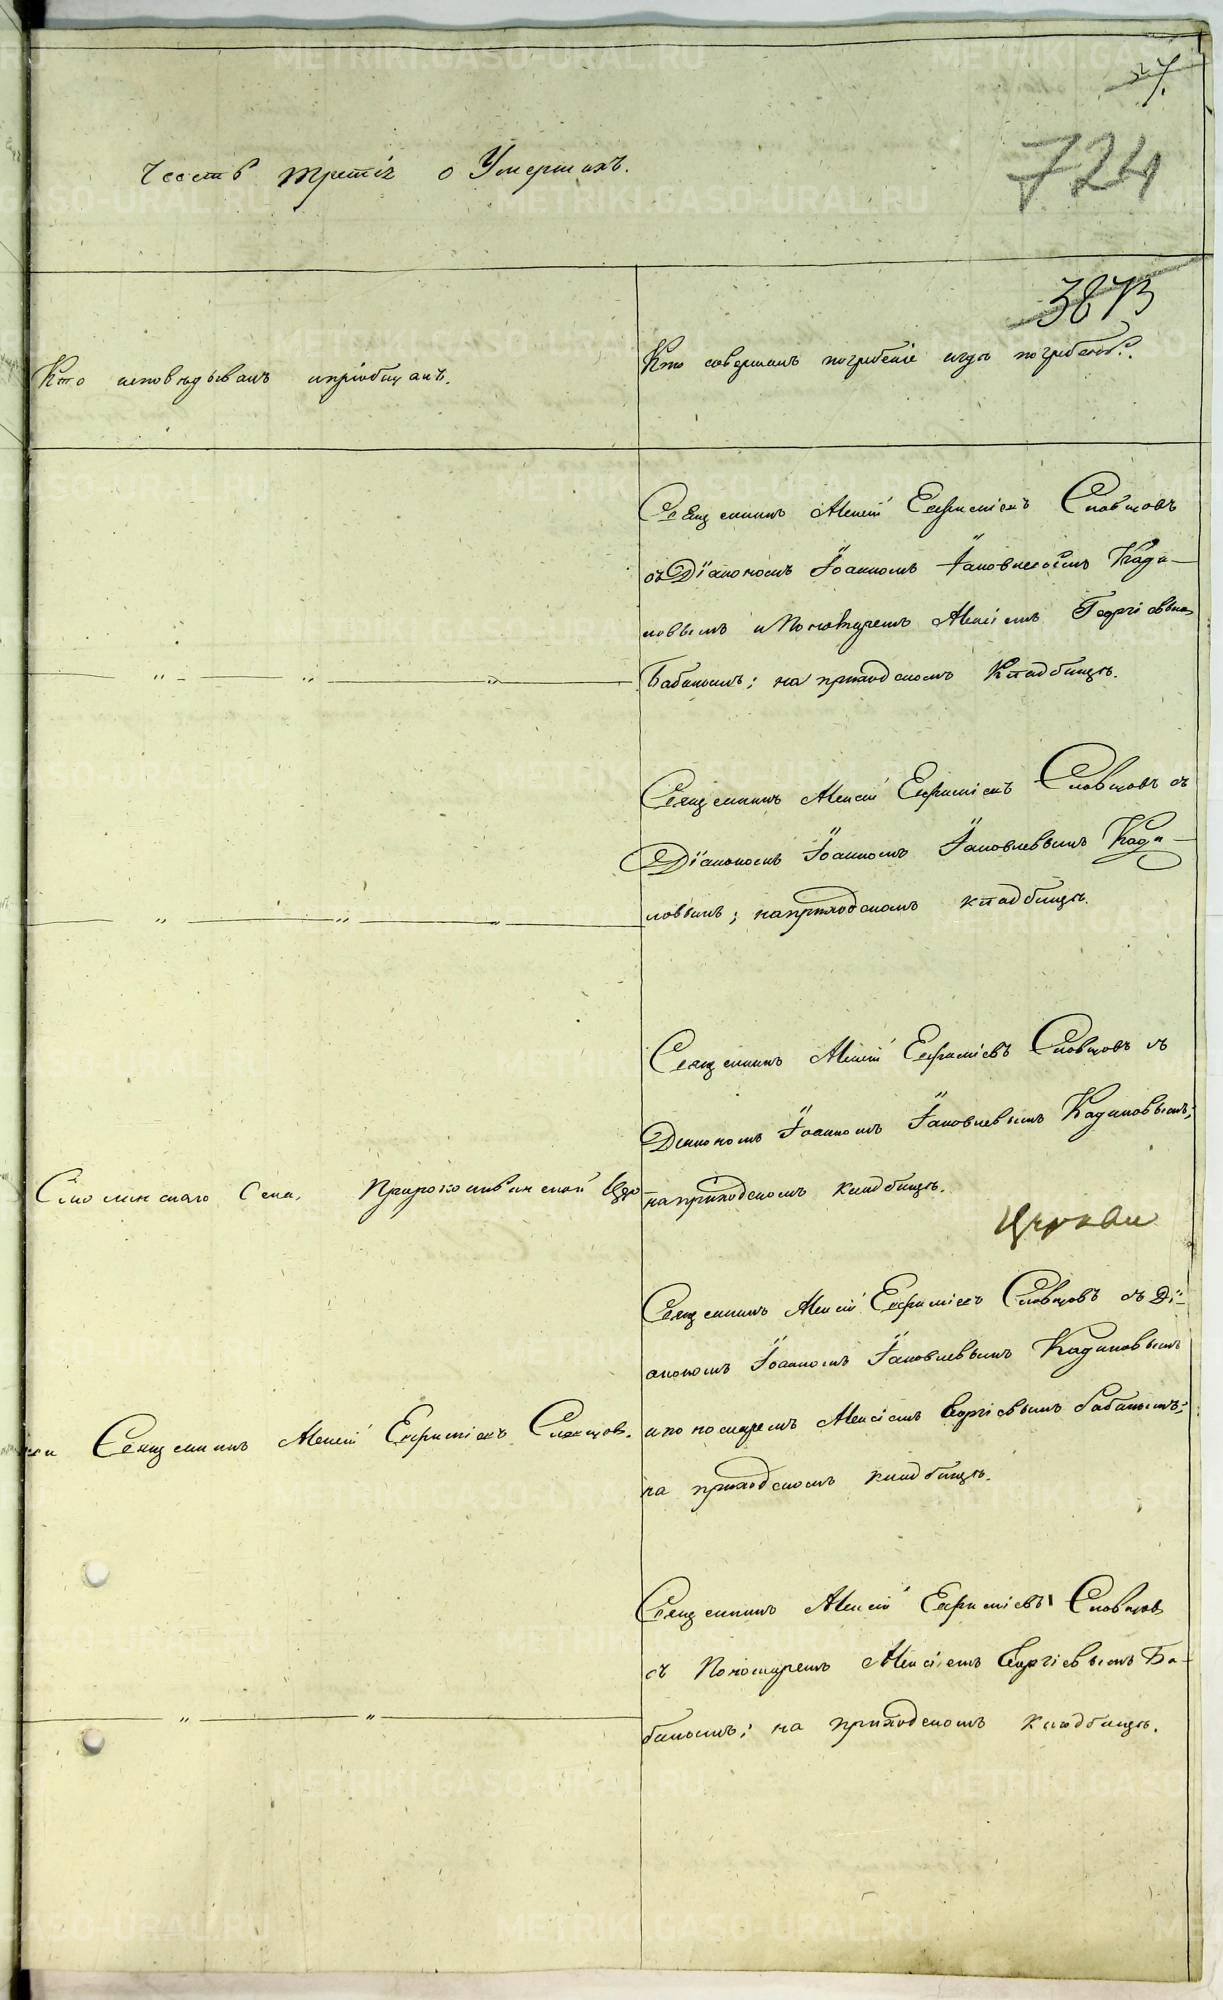 27.
724
Часть третія о Умершихъ.
3873
Кто исповѣдывалъ ипріобщалъ.
Кто совершалъ погребеніе игдѣ погребены.
Священникъ Алексій Евфиміевъ Словцовъ
съ Діакономъ Іоанномъ Іаковлевымъ Кади-
ловымъ и Пономаремъ Алексіемъ Георгіевымъ
Бабинымъ; на приходскомъ Кладбищѣ.
Священникъ Алексій Евфиміевъ Словцовъ съ
Діакономъ Іоанномъ Іаковлевымъ Кади-
ловымъ; наприходскомъ кладбищѣ.
Священникъ Алексій Евфиміевъ Словцовъ съ
Діакономъ Іоанномъ Іаковлевымъ Кадиловымъ;
наприходскомъ кладбищѣ.
Смолинскаго Села, Пророкоильинской Цер
Церкви
Священникъ Алексій Евфиміевъ Словцовъ съ Ді-
акономъ Іоанномъ Іаковлевымъ Кадиловымъ
ипономаремъ Алексіемъ Георгіевымъ Бабинымъ;
на приходскомъ кладбищѣ.
Священникъ Алексій Евфиміевъ Словцовъ.
Священникъ Алексій Евфиміевъ Словцовъ
съ Пономаремъ Алексіемъ Георгіевымъ Ба-
бинымъ; на приходскомъ кладбищѣ.
METRIKI.GASO-URAL.RU